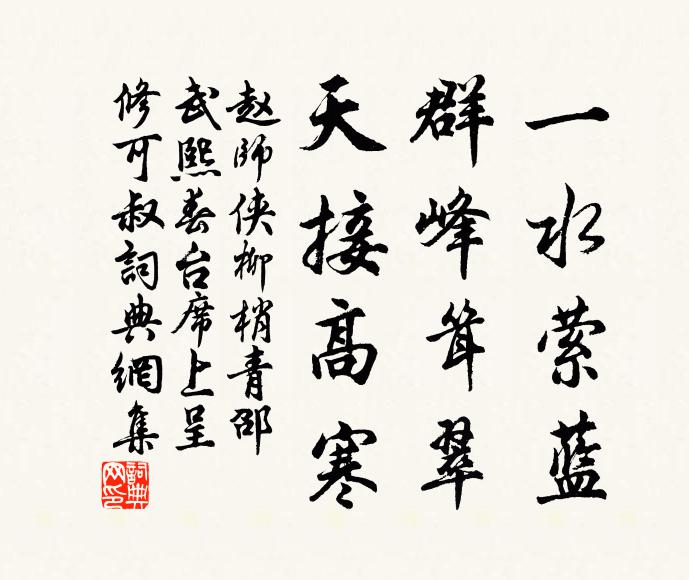 一水萦蓝
群峰耸翠
天接高寒
赵師侠柳梢青邵
武熙春台席上呈
修可叔詞典網集
詞典
网印